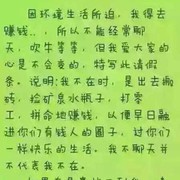 因环境生活所迫，我得去
赚钱．．，所以不能经常聊
天，吹牛等等，但我爱大家的
心是不会变的，特写此请假
条。说明:我不在时，是出去搬
砖，捡矿泉水瓶子，打零
工，拼命地赚钱，以便早日融
进你们有钱人的圈子，过你们
一样快乐的生活。我不聊天并
不代表我不在。